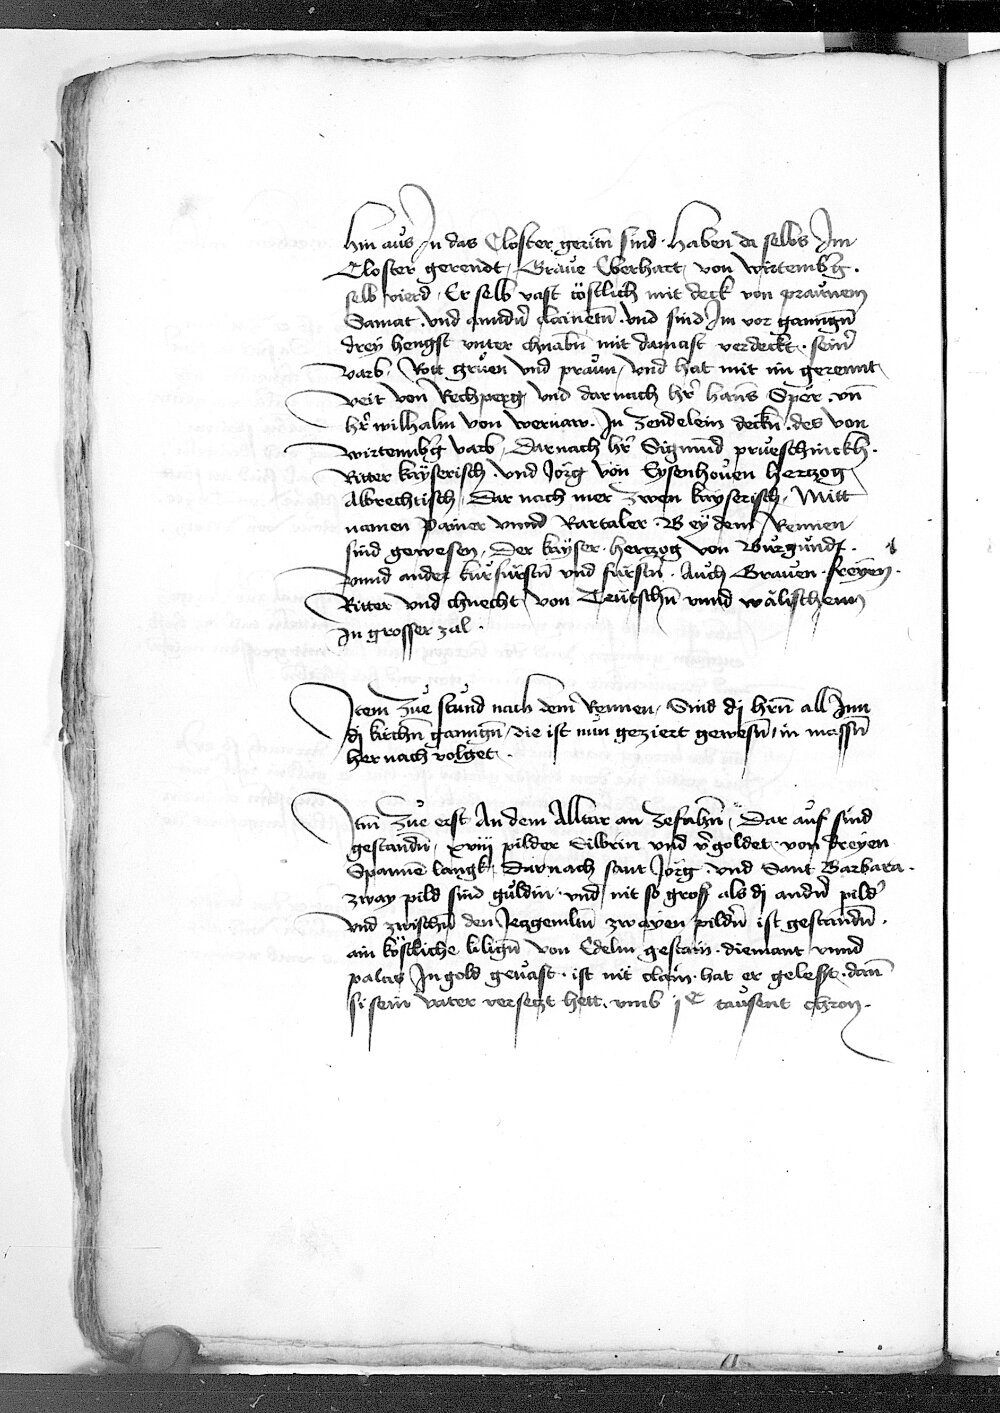 hin aus In das Closter geritn̄ sind · haben da selbs Im
Closter gerendt, Graue Eberhart, von wirtemb̄g ·
selb vierd, Er selb vast cöstlich mit deck von prawnem
Samat vnd anndn̄ clainetn̄ vnd sind Im vor ganngn̄
drey hengst vnter chnabn̄ mit damast verdeckt · seinr̄
varb, Rott grůen vnd praůn, vnd hat mit im gerennt,
Veit von Rechperg, vnd darnach hr̄ hanns Sper · vn̄
hr̄ wilhalm von wernaw · In zendelein deckn̄ · des von
wirtemb̄g varb, Darnach hr̄ Sigmund průeschinckh ·
Ritter kayserisch · vnd Jörg von Eysenhouen hertzog
Albrechtisch, Dar nach mer zwen kayserisch, Mitt
namen Pamer vnnd Rartaler · Bey dem Rennen
sind gewesen, Der kayser · hertzog von Burgundi ·
vnnd ander kurfurstn̄ vnd furstn̄ · Auch Grauen · freyen ·
Ritter vnd chnecht, von Teutschn̄ vnnd wälischenn
In grosser zal ·
Item zue stund nach dem Rennen, Sind dj hrn̄ all Inn
dj kirchn̄ ganngn̄, die ist nun geziert gewesn̄, in massn̄
her nach volget ·
Itm̄ Zue erst An dem Alltar an zefahn̄, Dar auf sind
gestandn̄, xviij pilder Silbrin vnd v̄goldet · von dreyen
Spannē langk, Darnach sant Jörg · vnd Sant Barbara ·
zway pild sind guldin · vnd nit so gross als dj andn̄ pildr̄
vnd zwischn̄ den Jetzgemltn̄ zwayen pildn̄ ist gestandn̄ ·
ain köstliche lilign̄ von Edelm gestain · diemant vnnd
palas In gold geuast · ist nit clain · hat er gelesst · dann
si sein vater versetzt hett · vmb jᶜ tausent chron ·